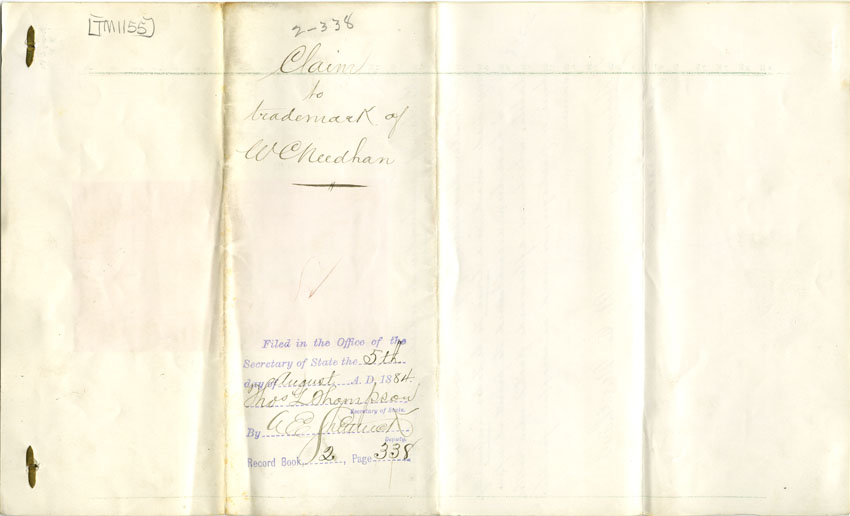 [TM1155]
2-338
Claim
to
trademark of
W C Needhan
Filed in the Office of the
Secretary of State the 5th
day of August A. D. 1884.
Thos L Thompson
Secretary of State.
By
Deputy.
Record Book, 2, Page 338